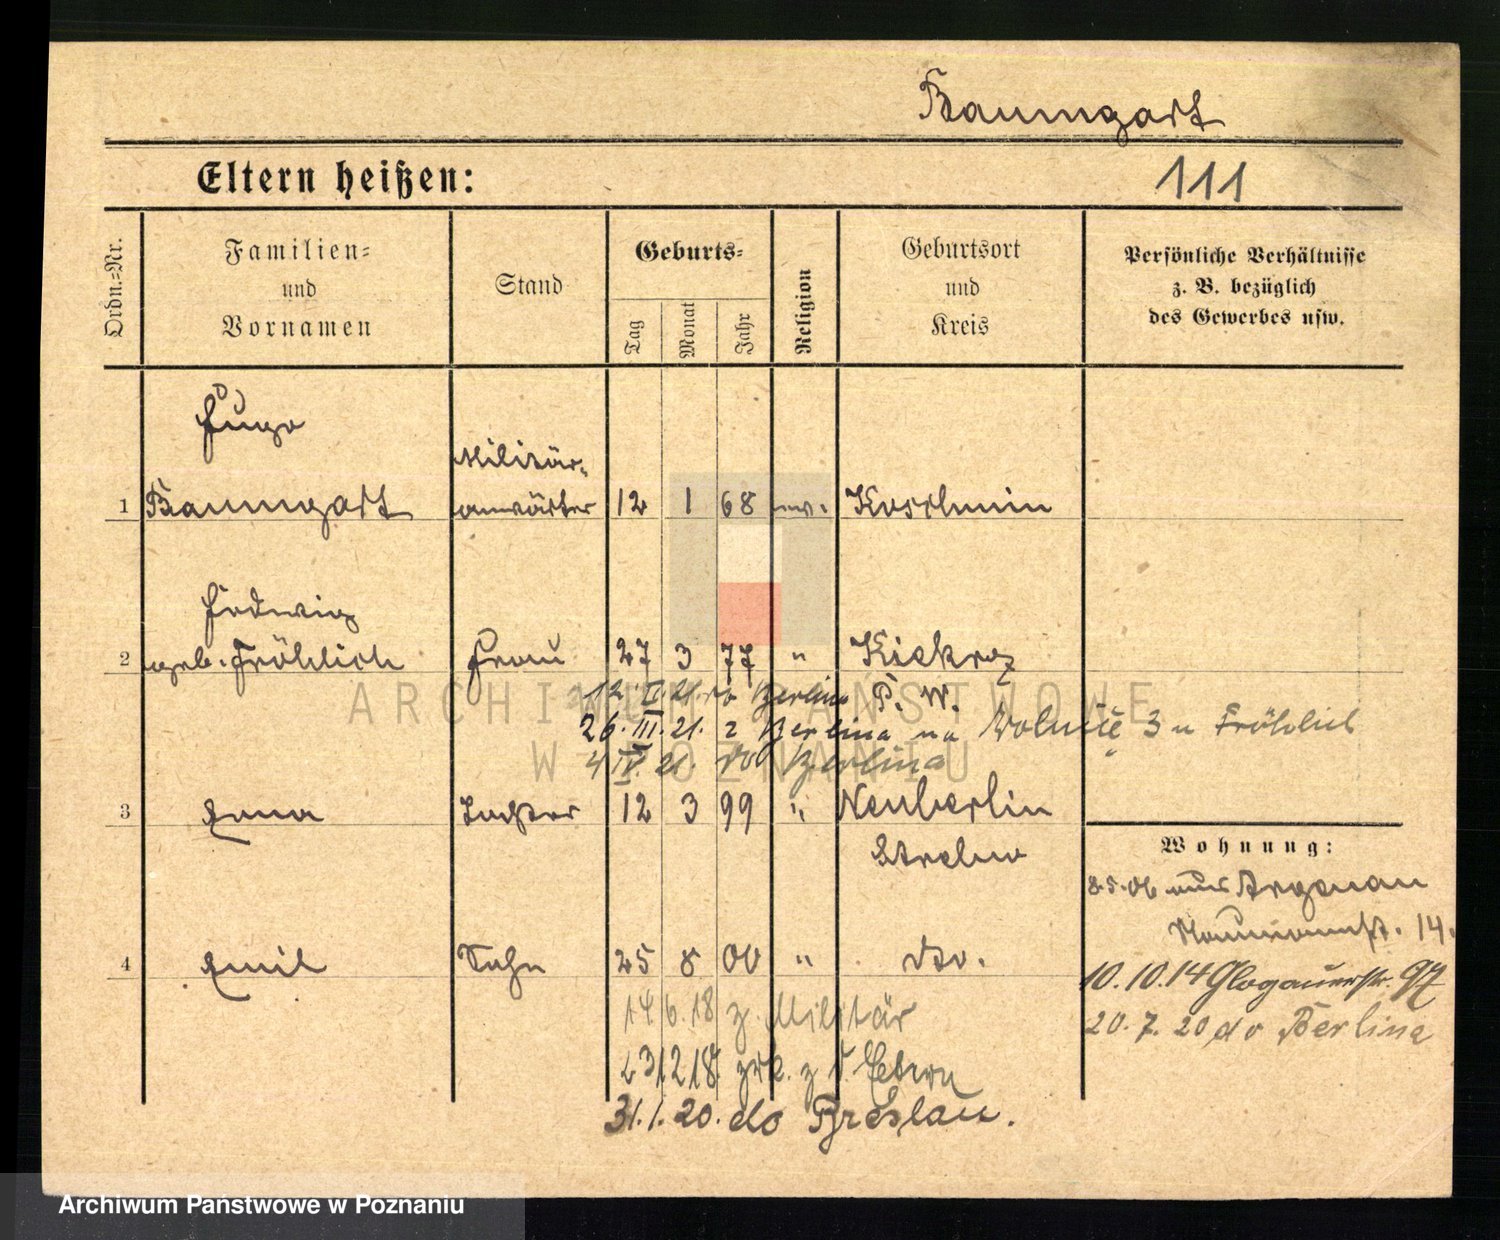 Baumgart
Eltern heißen:
111
Ordn.=Nr.
Familien=
und
Vornamen
Stand
Geburts=
Tag
Monat
Jahr
Religion
Geburtsort
und
Kreis
Persönliche Verhältnisse
z. B. bezüglich
des Gewerbes usw.
Hugo
1 Baumgart Militär= anwärter 12 1 68 Koschmin
Hedwig
2 geb. Fröhlich Frau 27 3 77 " Kiekrz
12. II. 21. do Berlina P. W.
26. III. 21. z Berlina na Wolnice 3 u Fröhlich
4 IV. 21. do Berlina
3 Erna Tochter 12 3 99 " Neuberlin
Strelno
4 Emil Sohn 25 8 00 " dto.
14 6. 18 z. Militär
23 12 18 zrk. z d. Eltern
31. 1. 20. do Breslau.
Wohnung:
8.5.06 aus Argenau
14.
10. 10. 14 Glogauerstr. 97
20. 7. 20 do Berlina
ARCHIWUM PAŃSTWOWE
W POZNANIU
Archiwum Państwowe w Poznaniu